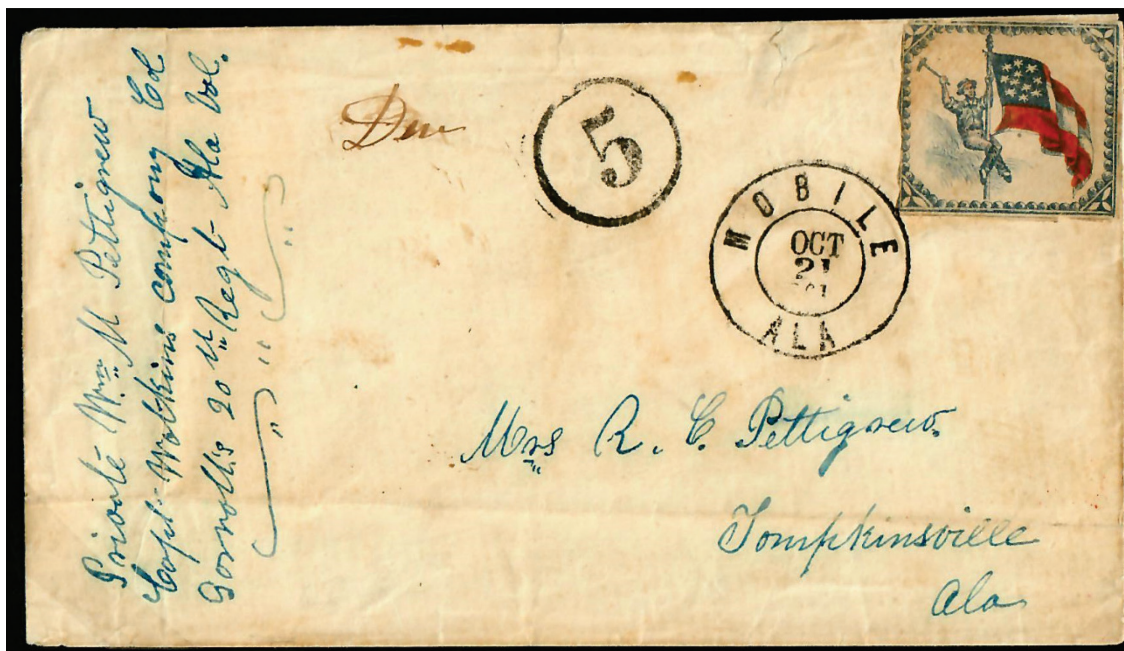 Private Wm M Pettigrew
Capt Watkins company Col
Garrotts 20th Regt Ala Vol.
Due
5
MOBILE
OCT
21
ALA
Mrs R. C. Pettigrew.
Tompkinsville
Ala